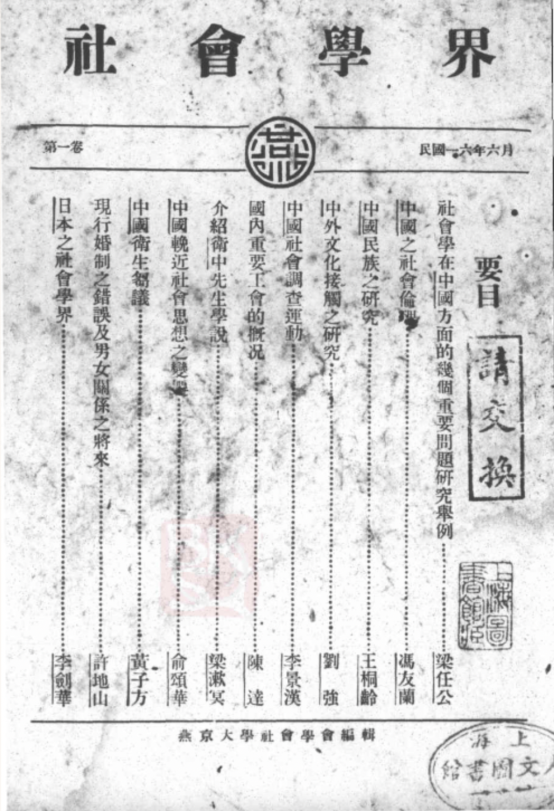 社會學界
第一卷
燕
民國一六年六月
要目
請交換
社會學在中國方面的幾個重要問題研究舉例 梁任公
中國之社會倫理 馮友蘭
中國民族之研究 王桐齡
中外文化接觸之研究 劉強
中國社會調查運動 李景漢
國內重要工會的概况 陳達
介紹衛中先生學說 梁漱冥
中國輓近社會思想之變遷 俞頌華
中國衛生芻議 黃子方
現行婚制之錯誤及男女關係之將來 許地山
日本之社會學界 李劍華
上海圖書館藏
燕京大學社會學會編輯
上海
文圖書館